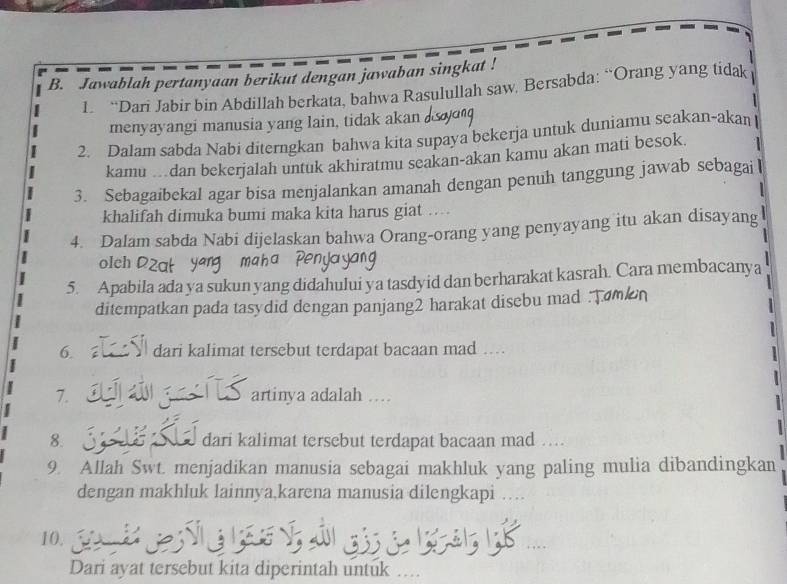 B. Jawablah pertanyaan berikut dengan jawaban singkat !
1. “Dari Jabir bin Abdillah berkata, bahwa Rasulullah saw. Bersabda: “Orang yang tidak
menyayangi manusia yang lain, tidak akan disayang
2. Dalam sabda Nabi diterngkan bahwa kita supaya bekerja untuk duniamu seakan-akan
kamu ...dan bekerjalah untuk akhiratmu seakan-akan kamu akan mati besok.
3. Sebagaibekal agar bisa menjalankan amanah dengan penuh tanggung jawab sebagai
khalifah dimuka bumi maka kita harus giat ....
4. Dalam sabda Nabi dijelaskan bahwa Orang-orang yang penyayang itu akan disayang
oleh Dzat yang maha Penyayang
5. Apabila ada ya sukun yang didahului ya tasdyid dan berharakat kasrah. Cara membacanya
ditempatkan pada tasydid dengan panjang2 harakat disebu mad .Tamkin
6. اَلْاَشْيَآءَ dari kalimat tersebut terdapat bacaan mad ....
7. كَمَآ اَحْسَنَ اللهُ اِلَيْكَ artinya adalah ....
8. لَعَلَّكُمْ تُفْلِحُوْنَ dari kalimat tersebut terdapat bacaan mad ....
9. Allah Swt. menjadikan manusia sebagai makhluk yang paling mulia dibandingkan
dengan makhluk lainnya,karena manusia dilengkapi ....
10. كُلُوْا وَاشْرَبُوْا مِنْ رِّزْقِ اللهِ وَلَا تَعْثَوْا فِى الْاَرْضِ مُفْسِدِيْنَ ....
Dari ayat tersebut kita diperintah untuk ....